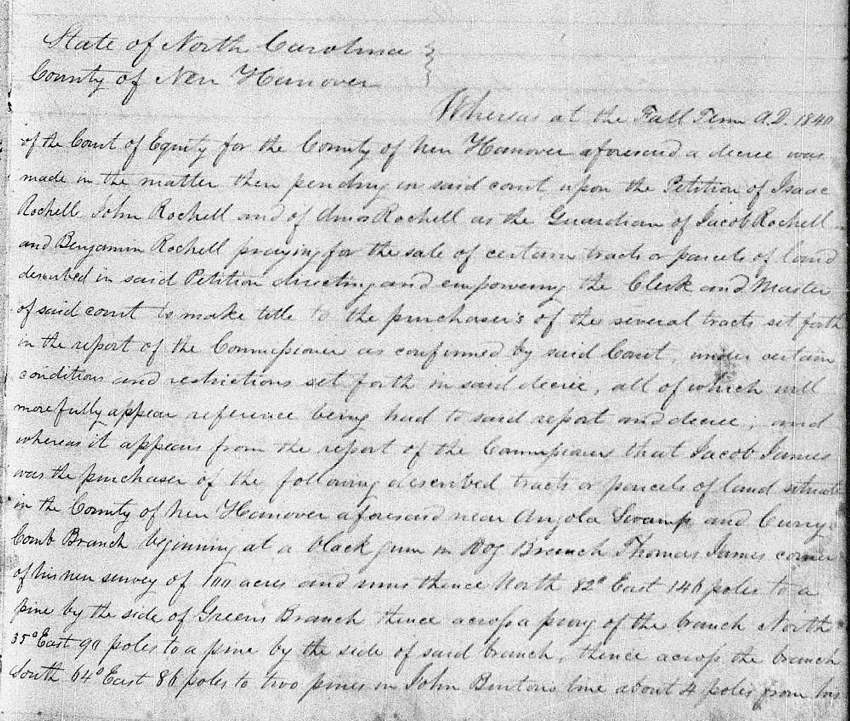 State of North Carolina }
County of New Hanover }
Whereas at the Fall Term A.D. 1840
of the Court of Equity for the County of New Hanover aforesaid a decree was
made in the matter then pending in said court, upon the Petition of Isaac
Rochell John Rochell and of Amos Rochell as the Guardian of Jacob Rochell
and Benjamin Rochell praying for the sale of certain tracts or parcels of land
described in said Petition directing and empowering the Clerk and Master
of said court to make title to the purchaser's of the several tracts set forth
in the report of the Commissioner as confirmed by said Court, under certain
conditions and restrictions set forth in said decree, all of which will
more fully appear reference being had to said report and decree, and
whereas it appears from the report of the Commissioners that Jacob James
was the purchaser of the following described tracts or parcels of land situate
in the County of New Hanover aforesaid near Angola Swamp and Curry
Comb Branch beginning at a black gum in Dog Branch Thomas James corner
of his new survey of 100 acres and runs thence North 82° East 146 poles to a
pine by the side of Greens Branch thence across a prong of the branch North
35° East 90 poles to a pine by the side of said branch, thence across the branch
South 64° East 86 poles to two pines in John Bentons line about 4 poles from his